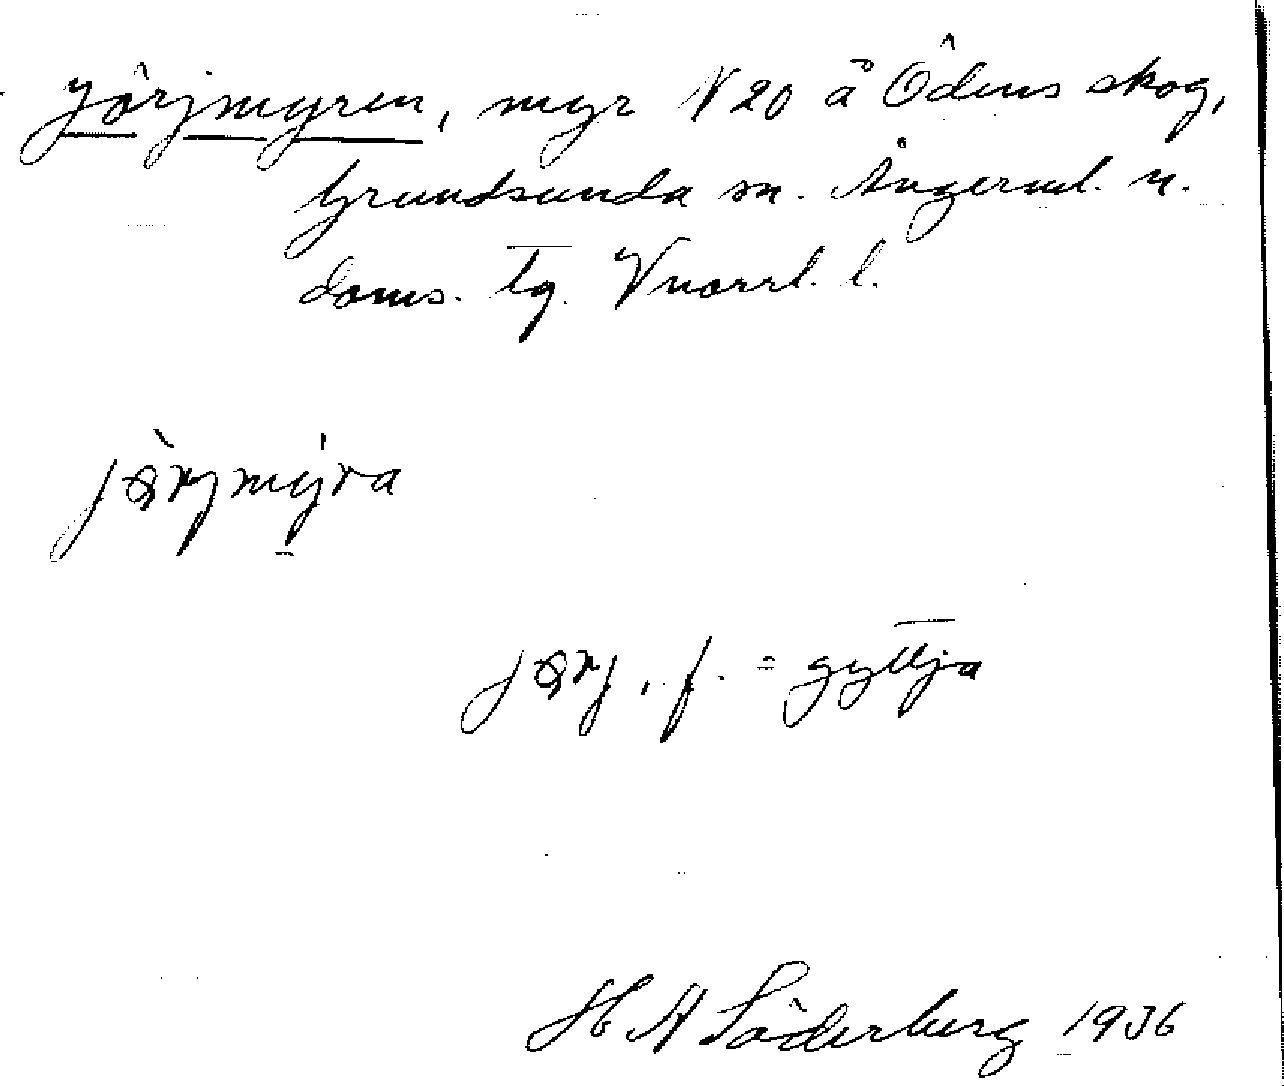 Jörjmyren, myr N 20 å Ödens skog,
Grundsunda sn. Ångerml. n.
doms. tg. Vnorrl. l.
jörjmyra
jörj, f. = gyttja
H A Söderberg 1936